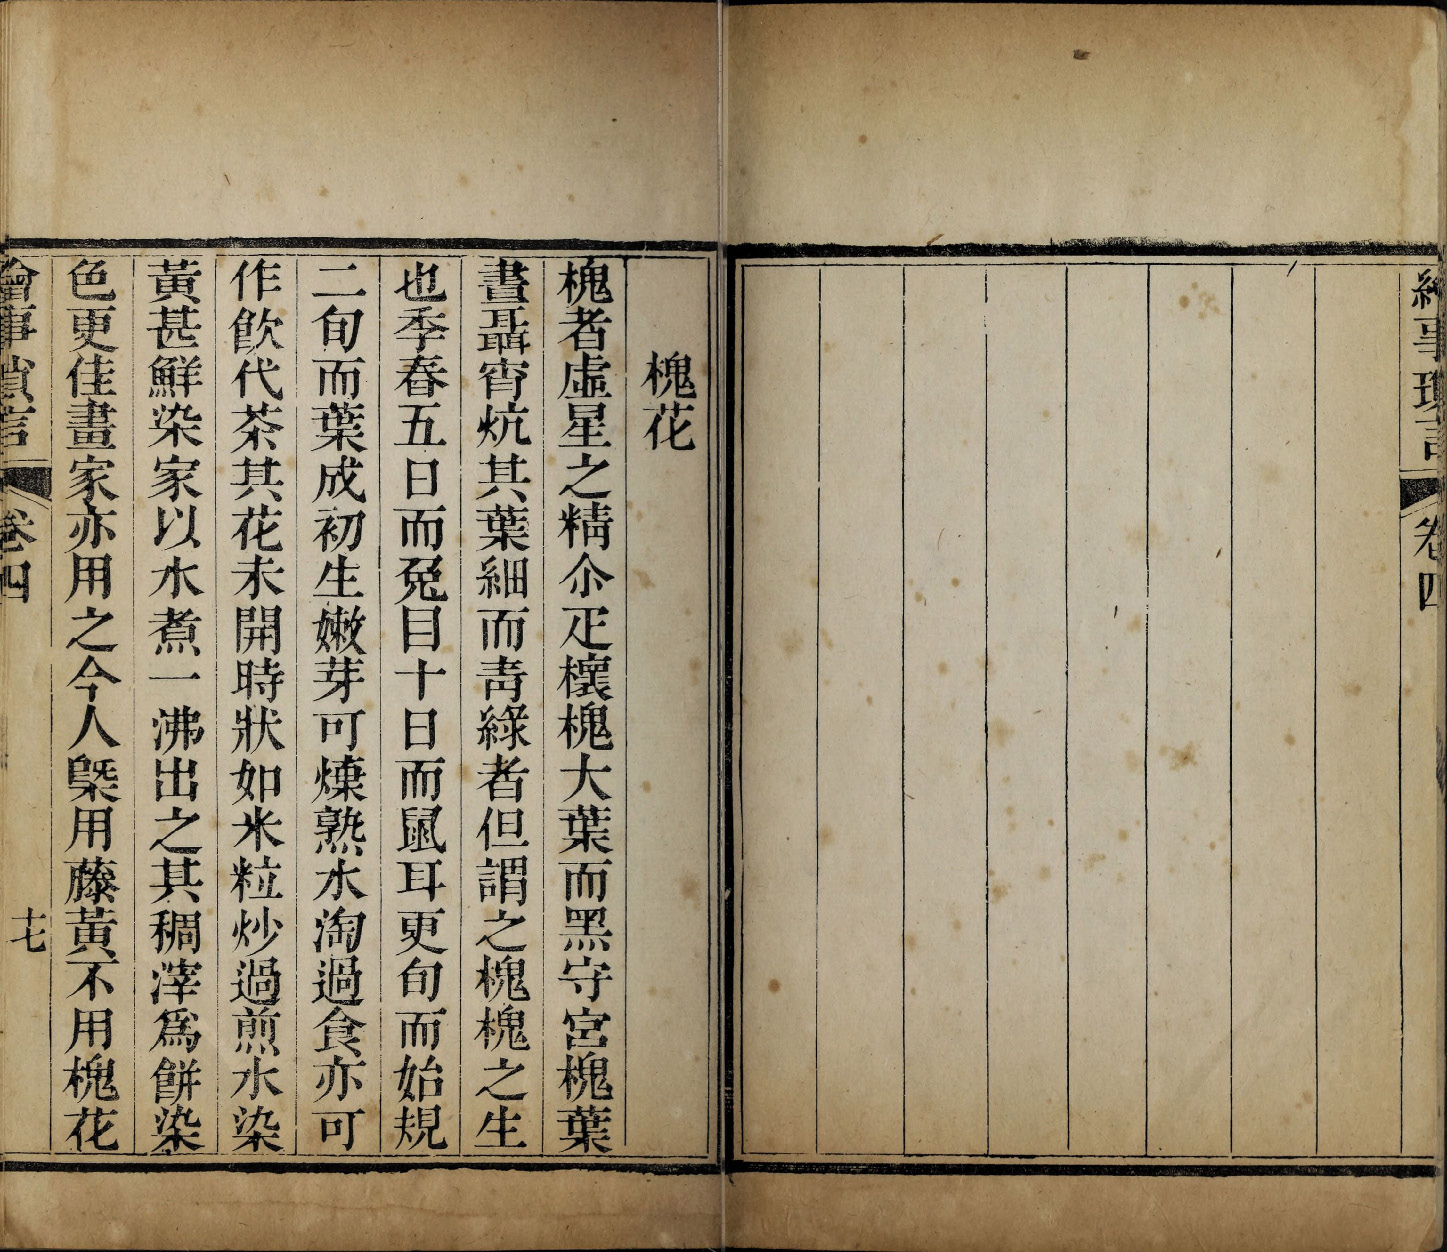 繪事瑣言
卷四
槐花
槐者虛星之精尒疋櫰槐大葉而黑守宮槐葉
晝聶宵炕其葉細而靑綠者但謂之槐槐之生
也季春五日而兔目十日而鼠耳更旬而始規
二旬而葉成初生嫩芽可煉熟水淘過食亦可
作飮代茶其花未開時狀如米粒炒過煎水染
黃甚鮮染家以水煮一沸出之其稠滓爲餠染
色更佳畫家亦用之今人槩用藤黃不用槐花
繪事瑣言
卷四
十七